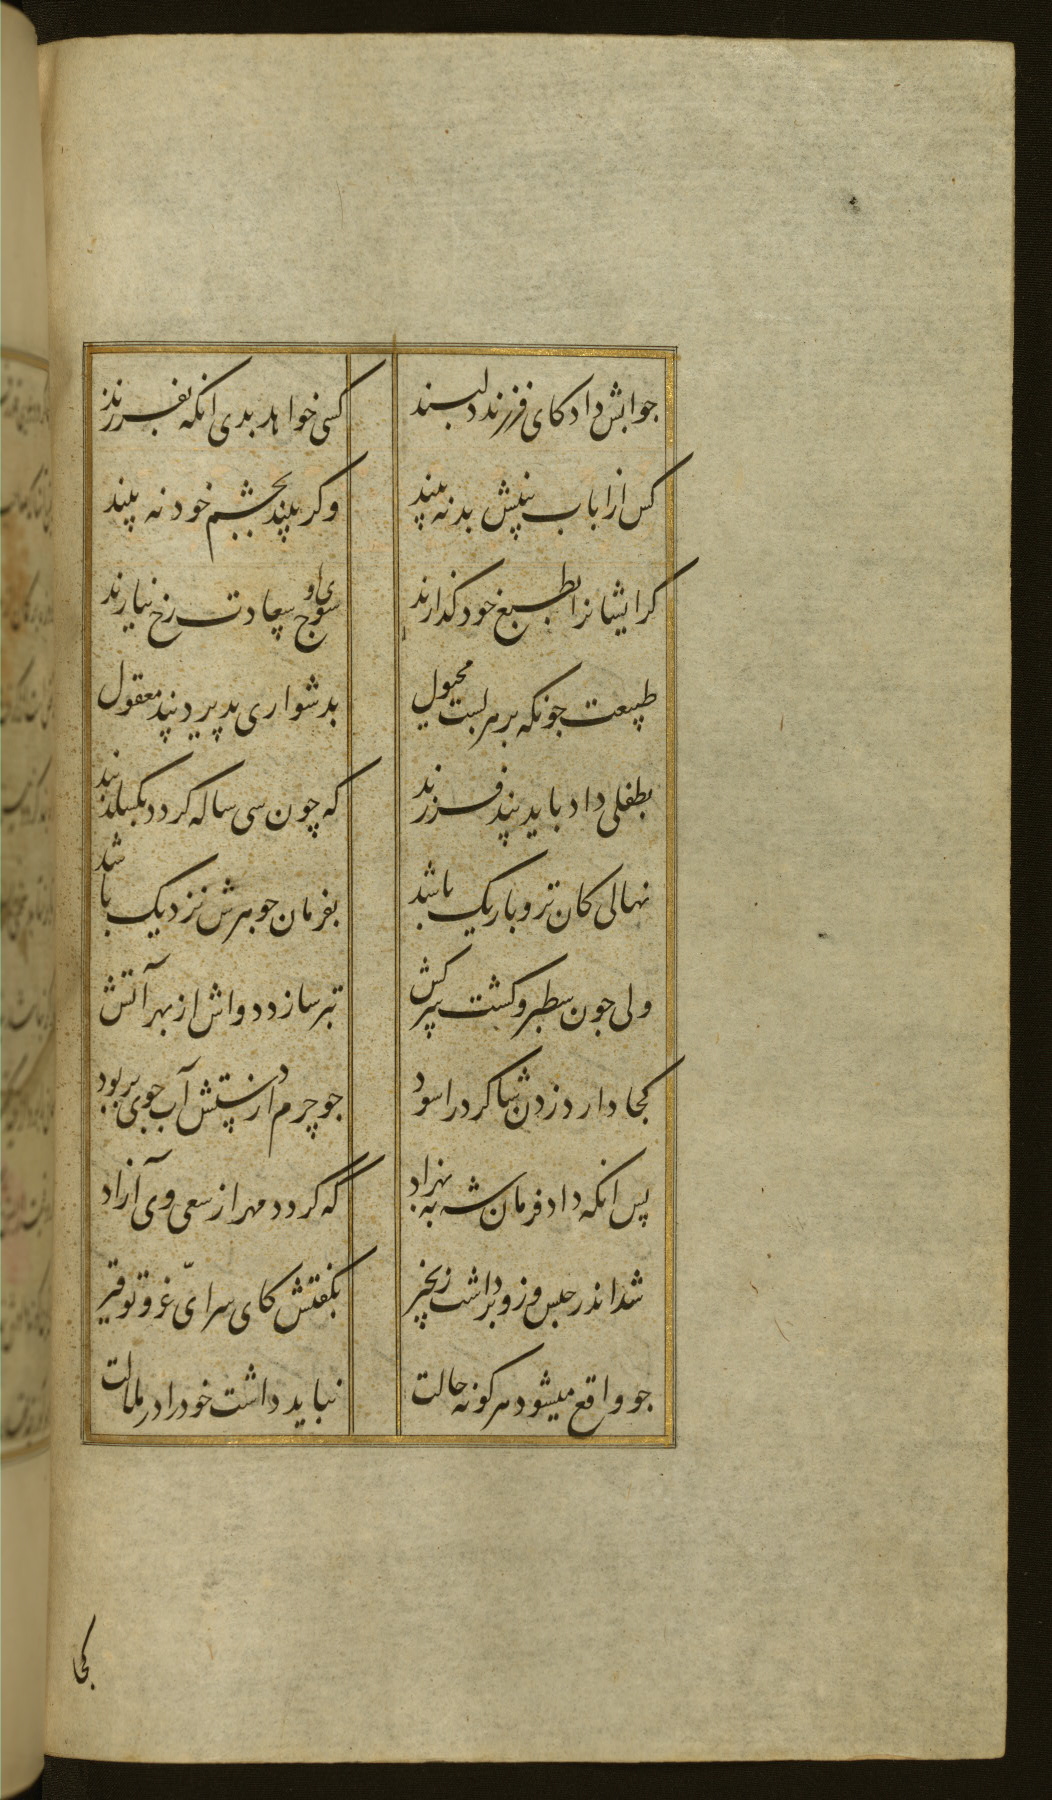 جوابش داد کای فرزند دلبند کسی خواهد بدی آنکه بفرزند
کس از ارباب بینش بد نه بیند وکر بیند بچشم خود نه بیند
کر ایشانرا بطبع خود کذارند سوی اوج سعادت رخ نیارند
طبیعت چونکه بر هرلیست مجبول بدشواری پذیرد پند معقول
بطفلی داد باید پند فرزند که چون سی ساله کردد بکسلد بند
نهالی کان تر و باریک باشد بفرمان جوهرش نزدیک باشد
ولی چون سطبر و کشت سرکش تبر سازد دواش از بهر آتش
کجا دارد زدن شاکرد را سود چو چرم از دستش آب جوی بربود
پس انکه داد فرمان شه به بهزاد که کردد مهر از سعی وی آزاد
شد اندر حبس و زو برداشت زنجیر بکفتش کای سرای عز و توقیر
چو واقع میشود هر کونه حالت نباید داشت خود را در ملالت
کجا